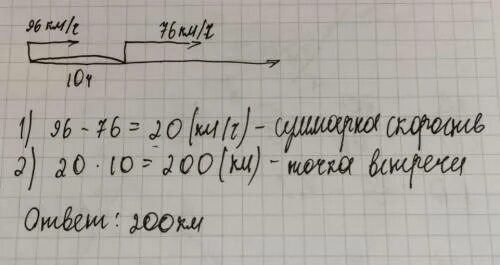 96 км/ч 76 км/ч
10ч
1) 96 - 76 = 20 (км/ч) - суммарна скорость
2) 20 · 10 = 200 (км) - точка встречи
Ответ: 200км